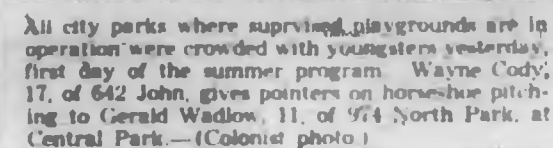 All city parks where suprvised playgrounds are in
operation were crowded with youngsters yesterday,
first day of the summer program. Wayne Cody,
17, of 642 John, gives pointers on horseshoe pitch-
ing to Gerald Wadlow, 11, of North Park, at
Central Park.—(Colonist photo.)